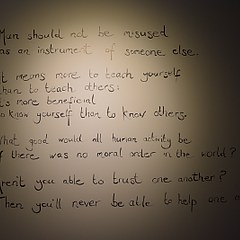 Man should not be misused
as an instrument of someone else.
t means more to teach yourself
than to teach others;
t's more beneficial
to know yourself than to know others.
What good would all human activity be
f there was no moral order in the world?
Aren't you able to trust one another?
Then you'll never be able to help one